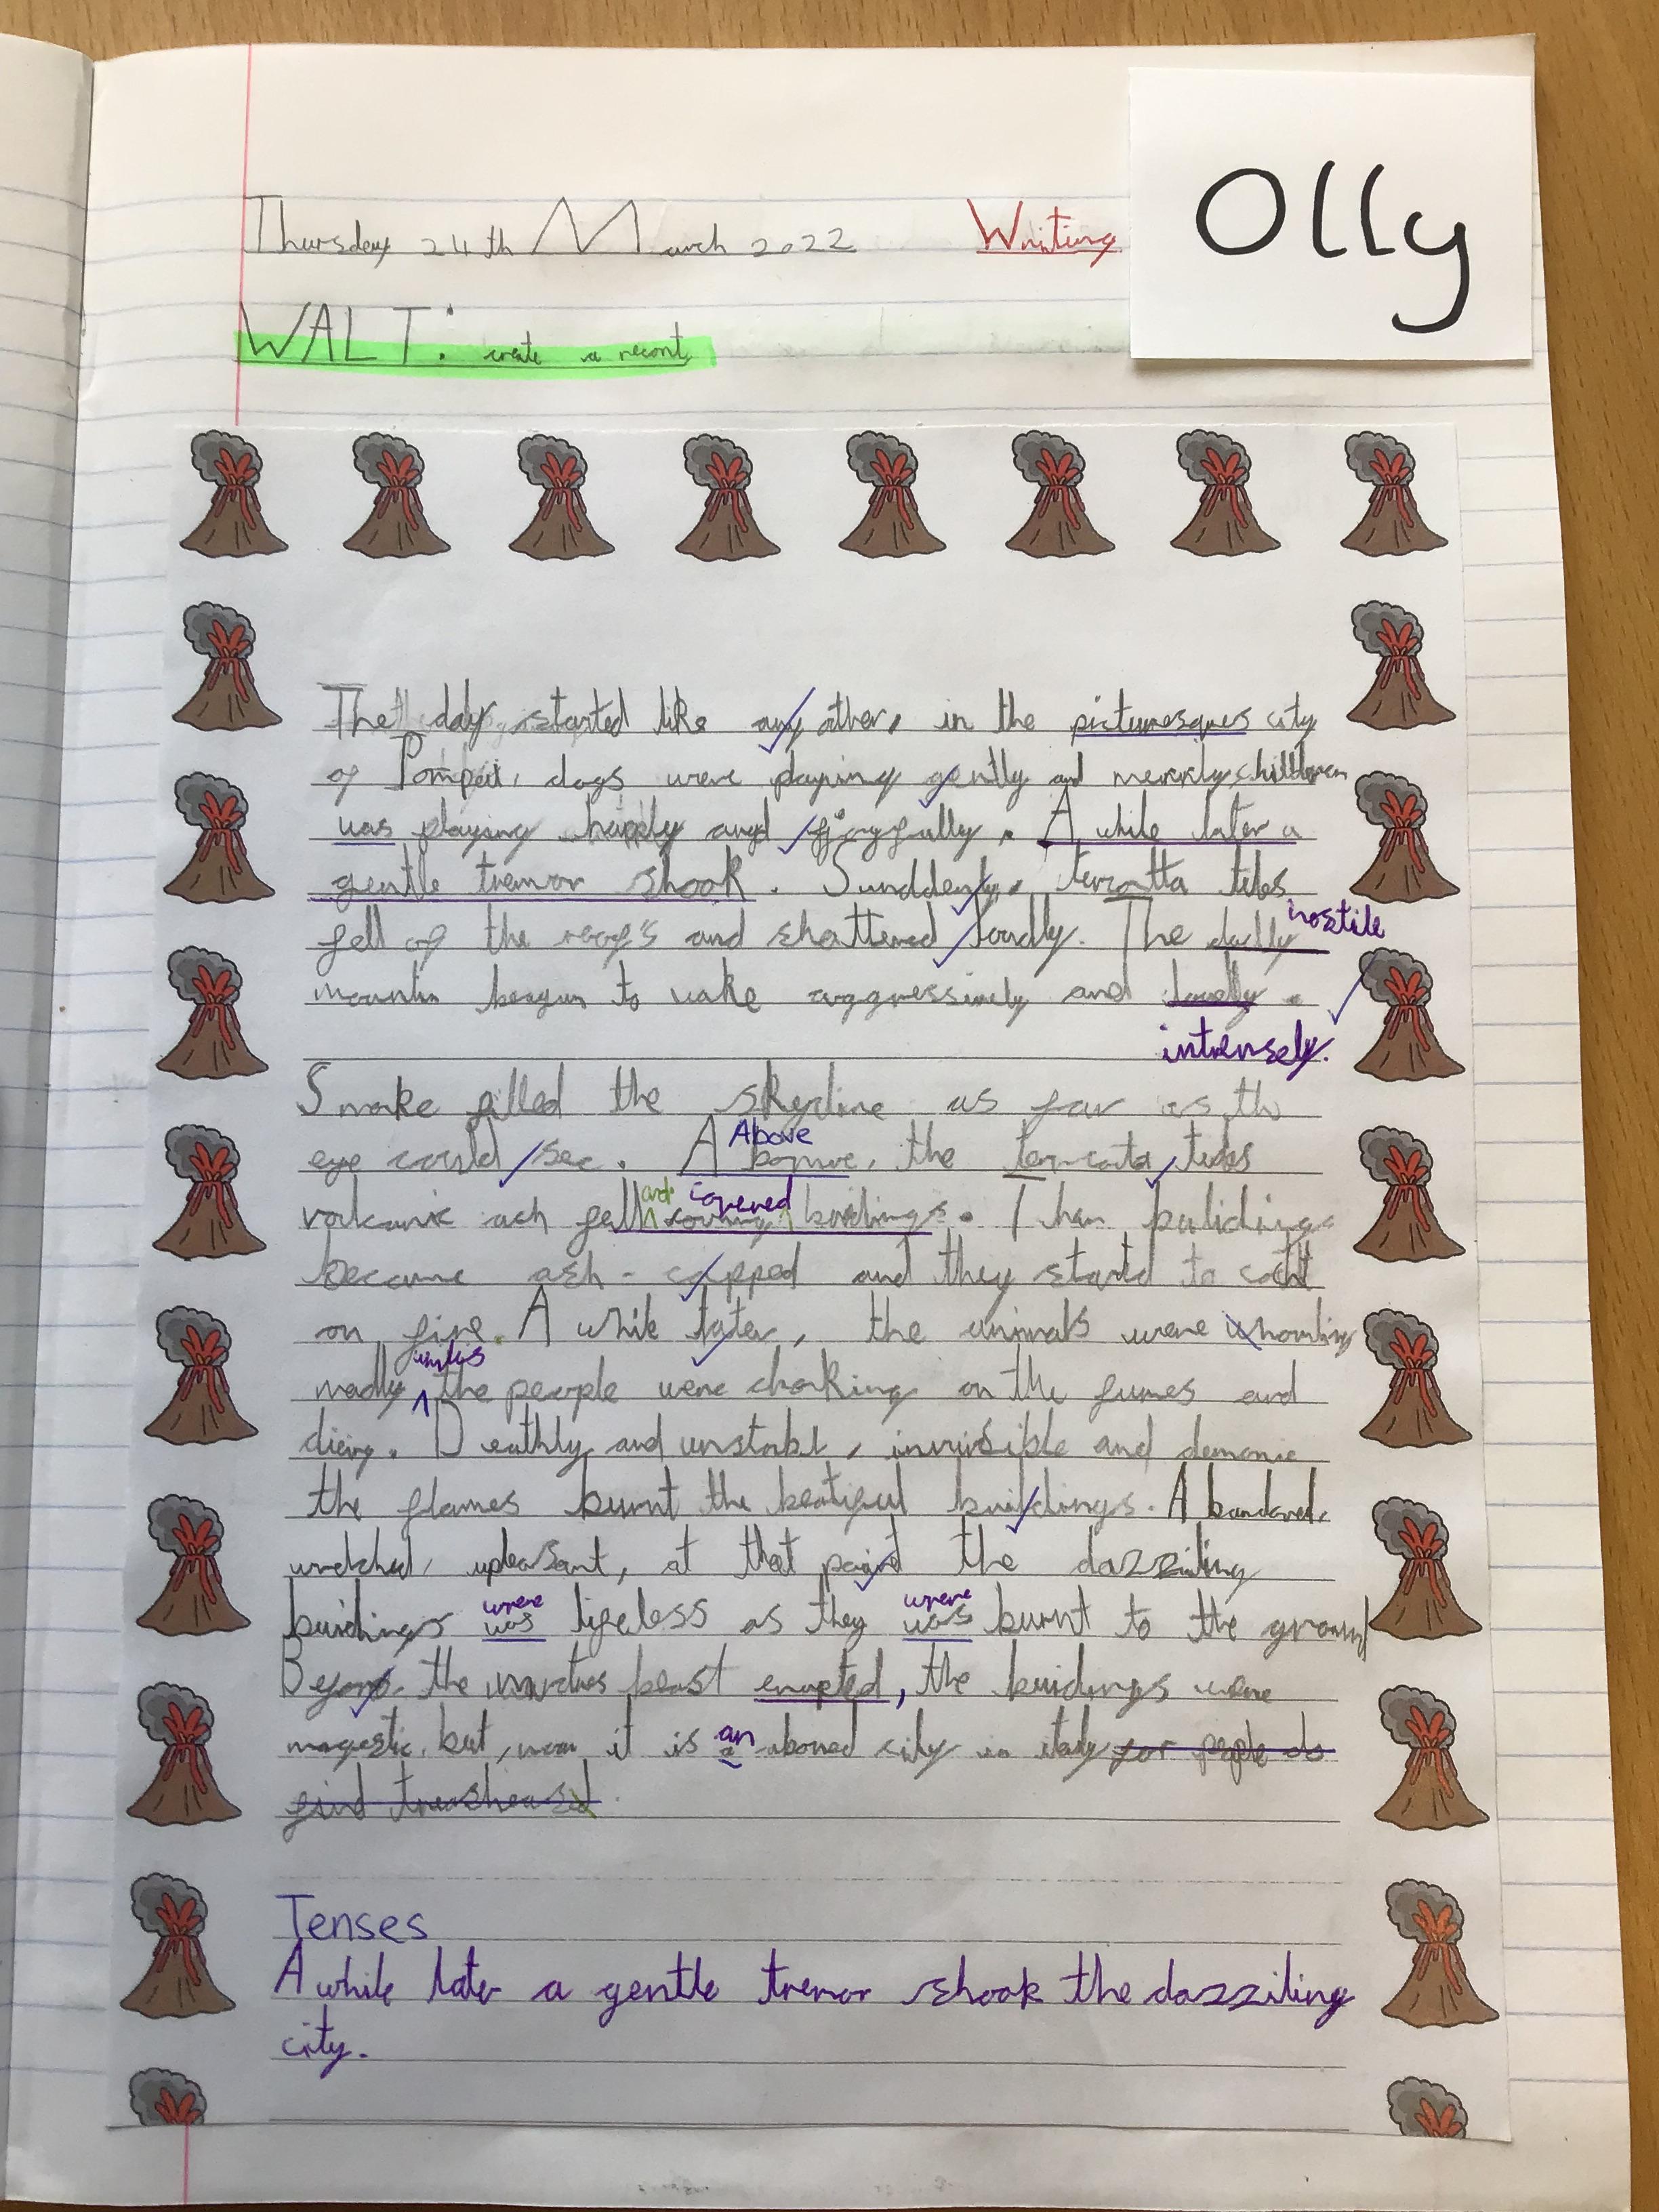 Thursday 24th March 2022 Writing
Olly
WALT: create a recont
The day started like any other, in the picturesques city
of Pompeii, dogs were playing gently and merrkly, chilldren
was playing happly and joyfully. A while later a
gentle tremor shook. Sunddenly, terratta tiles
fell of the roof's and shattered loudly. The hostile
mountin began to wake aggressively and
intensely.
Smoke filled the skyline as far as th
eye could see. Above, the terrcata tiles
volcanic ash fell and covered buildings. Then buildings
became ash-capped and they startd to cacht
on fire. A while later, the animals were howling
madly whilst the people were choking on the fumes and
dieing. Deathly and unstabl, invisible and demonic
the flames burnt the beatiful buildings. Abandoned,
wretched, upleasant, at that point the dazziling
buidings were lifeless as they were burnt to the ground
the beast erupted, the buidings were
magestic, but, now it is an aboned city in italy for people do
find
Tenses
A while later a gentle tremor shook the dazziling
city.